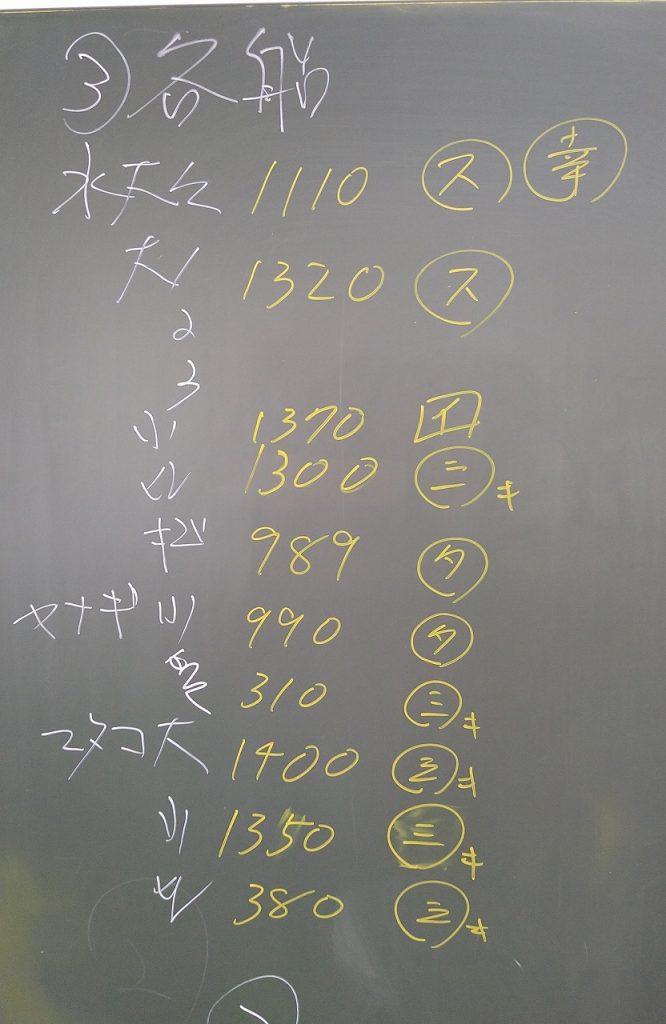 ③各船
水大 1110 ス 幸
大1 1320 ス
2
3
小 1370
1300 三キ
989 タ
ヤナギ 小 990 タ
310 三キ
マダコ 大 1400 三キ
小 1350 三キ
380 三キ